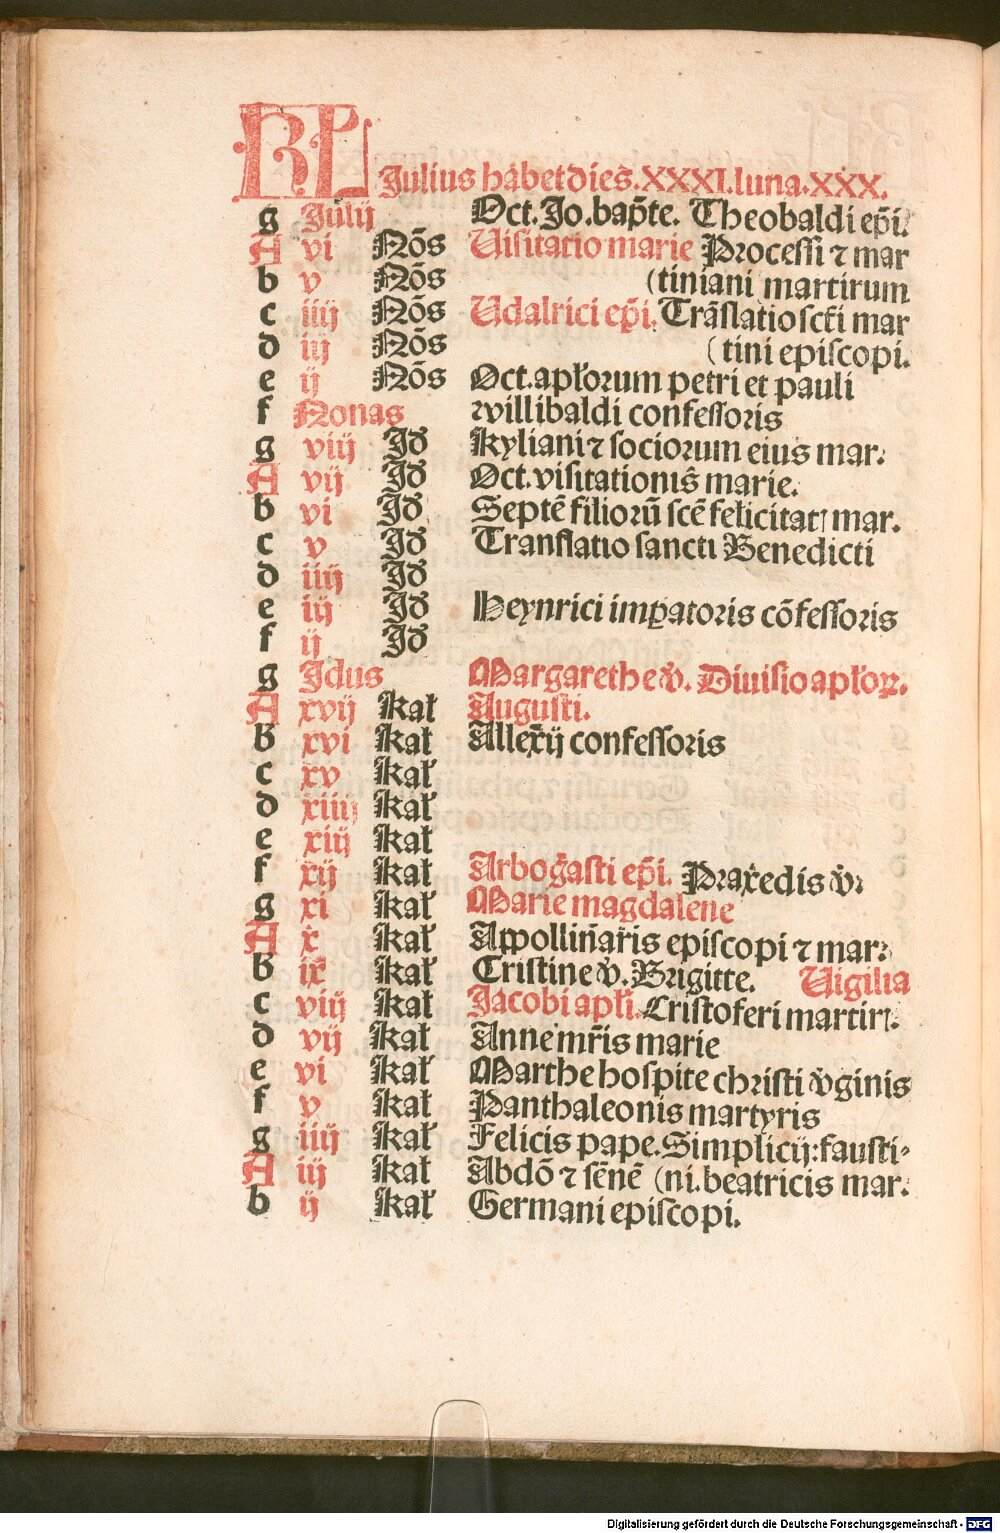 KL Julius habet dies.XXXI.luna.XXX.
g Julij Oct.Jo.bap̄te. Theobaldi ep̄i.
A vi Nōs Uisitatio marie Processi ⁊ mar
b v Nōs (tiniani martirum
c iiij Nōs Udalrici ep̄i. Trāslatio scti mar
d iij Nōs (tini episcopi.
e ij Nōs Oct.apłorum petri et pauli
f Nonas willibaldi confessoris
g viij Jd Kyliani ⁊ sociorum eius mar.
A vij Jd Oct.visitationis marie.
b vi Jd Septē filiorū scē felicitat mar.
c v Jd Translatio sancti Benedicti
d iiij Jd
e iij Jd Heynrici imꝑatoris cōfessoris
f ij Jd
g Jdus Margarethe v̄. Diuisio apłoꝝ.
A xvij Kał Augusti.
b xvi Kał Allexij confessoris
c xv Kał
d xiiij Kał
e xiij Kał
f xij Kał Arbogasti ep̄i. Praxedis v̄
g xi Kał Marie magdalene
A x Kał Appollinaris episcopi ⁊ mar.
b ix Kał Cristine v̄. Brigitte. Uigilia
c viij Kał Jacobi apłi. Cristoferi martir.
d vij Kał Anne mr̄is marie
e vi Kał Marthe hospite christi v̄ginis
f v Kał Panthaleonis martyris
g iiij Kał Felicis pape.Simplicij:fausti-
A iij Kał Abdō ⁊ sēnē (ni.beatricis mar.
b ij Kał Germani episcopi.
Digitalisierung gefördert durch die Deutsche Forschungsgemeinschaft - DFG